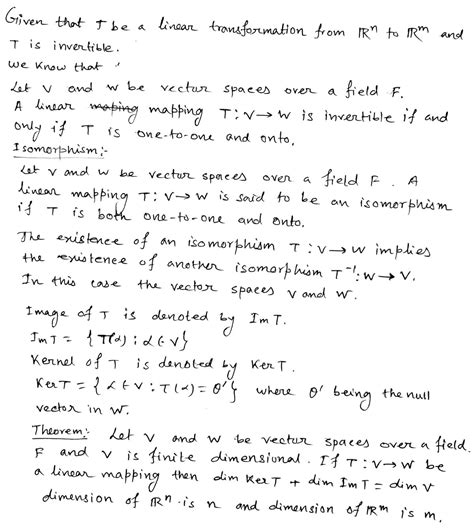 Given that T be a linear transformation from ℝⁿ to ℝᵐ and
T is invertible.
We know that :
Let V and W be vector spaces over a field F.
A linear mapping T : V → W is invertible if and
only if T is one-to-one and onto.
Isomorphism:-
Let V and W be vector spaces over a field F. A
linear mapping T : V → W is said to be an isomorphism
if T is both one-to-one and onto.
The existence of an isomorphism T : V → W implies
the existence of another isomorphism T⁻¹ : W → V.
In this case the vector spaces V and W.
Image of T is denoted by Im T.
Im T = { T(α) : α ∈ V}
Kernel of T is denoted by Ker T.
Ker T = { α ∈ V : T(α) = θ' } where θ' being the null
vector in W.
Theorem:- Let V and W be vector spaces over a field.
F and V is finite dimensional. If T : V → W be
a linear mapping then dim Ker T + dim Im T = dim V
dimension of ℝⁿ is n and dimension of ℝᵐ is m.